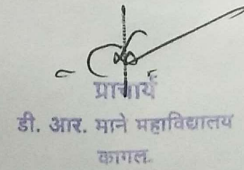 प्राचार्य
डी. आर. माने महाविद्यालय
कागल.